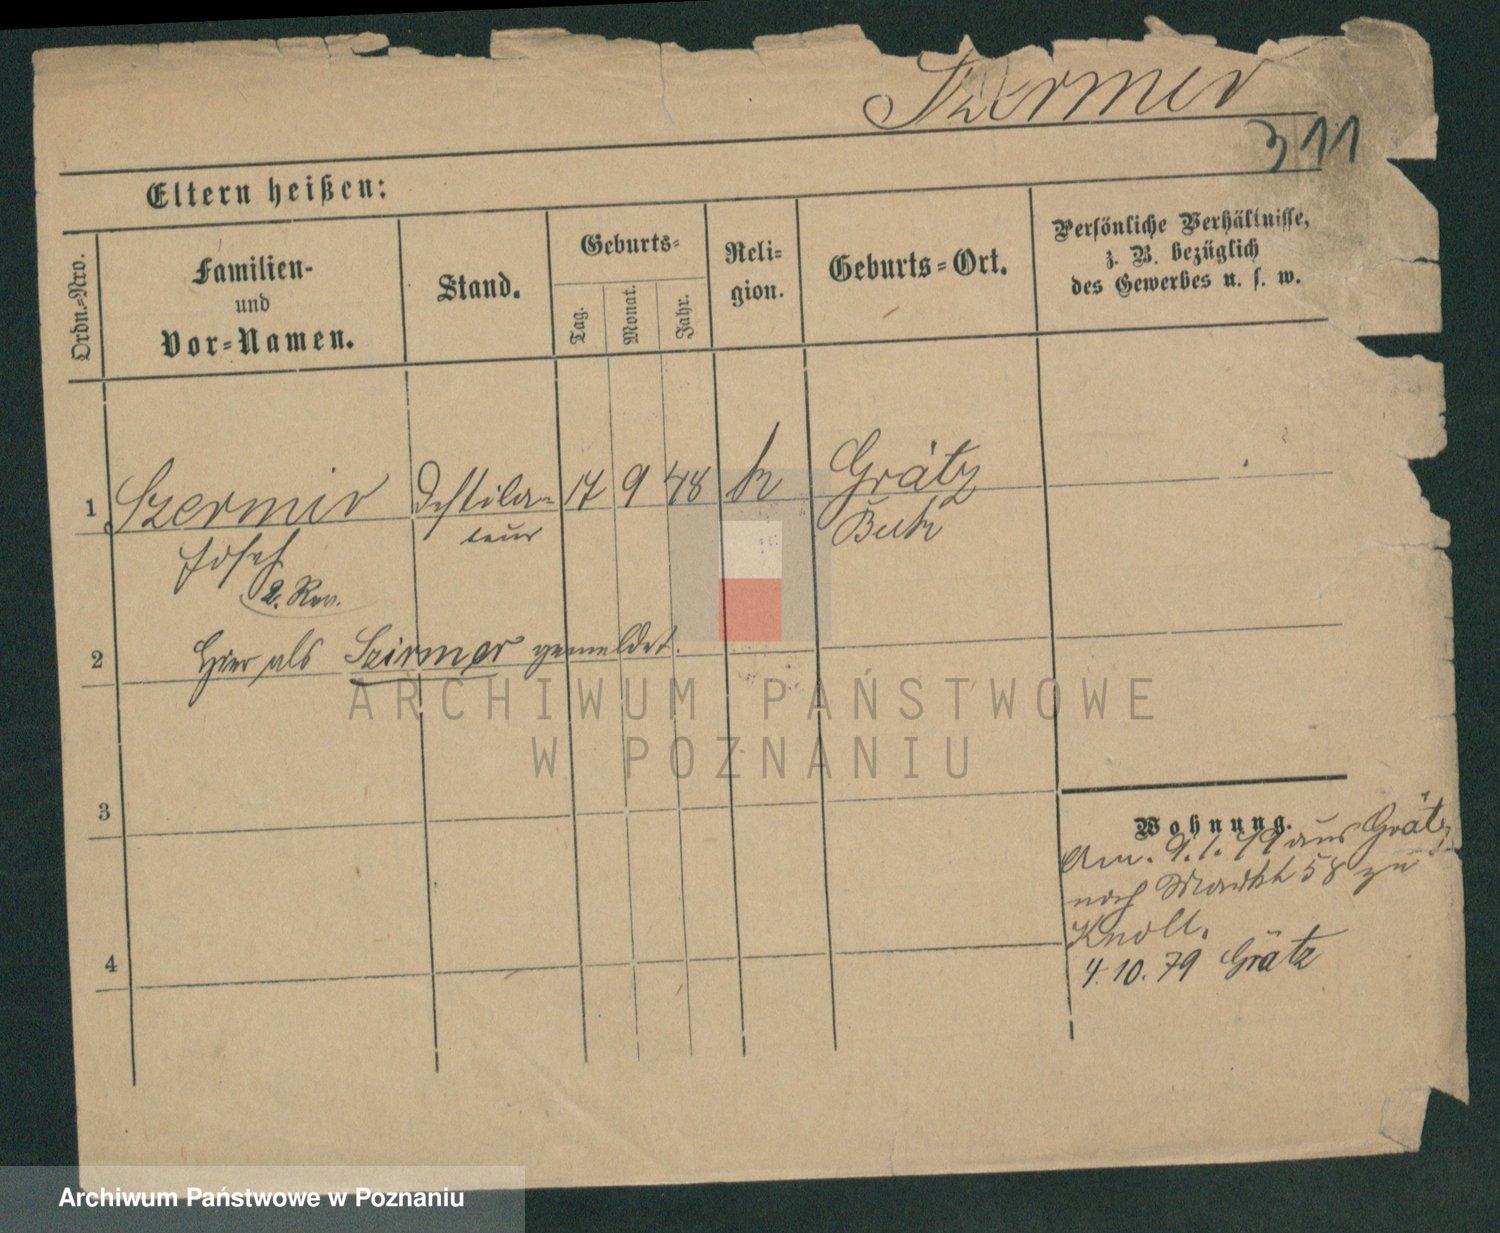 Szermer
311
Eltern heißen:
Ordn.-Nro.
Familien-
und
Vor-Namen.
Stand.
Geburts-
Tag.
Monat.
Jahr.
Reli-
gion.
Geburts-Ort.
Persönliche Verhältnisse,
z. B. bezüglich
des Gewerbes u. s. w.
1 Szermer Destila- 17 9 48 k Grätz
teur Buk
Josef
2. Rev.
2 Hier als Szirmer gemeldet.
3
4
Wohnung.
Am. 9.1.79 aus Grätz
nach Markt 58 zu
Knoll.
4.10.79 Grätz
ARCHIWUM PAŃSTWOWE
W POZNANIU
Archiwum Państwowe w Poznaniu